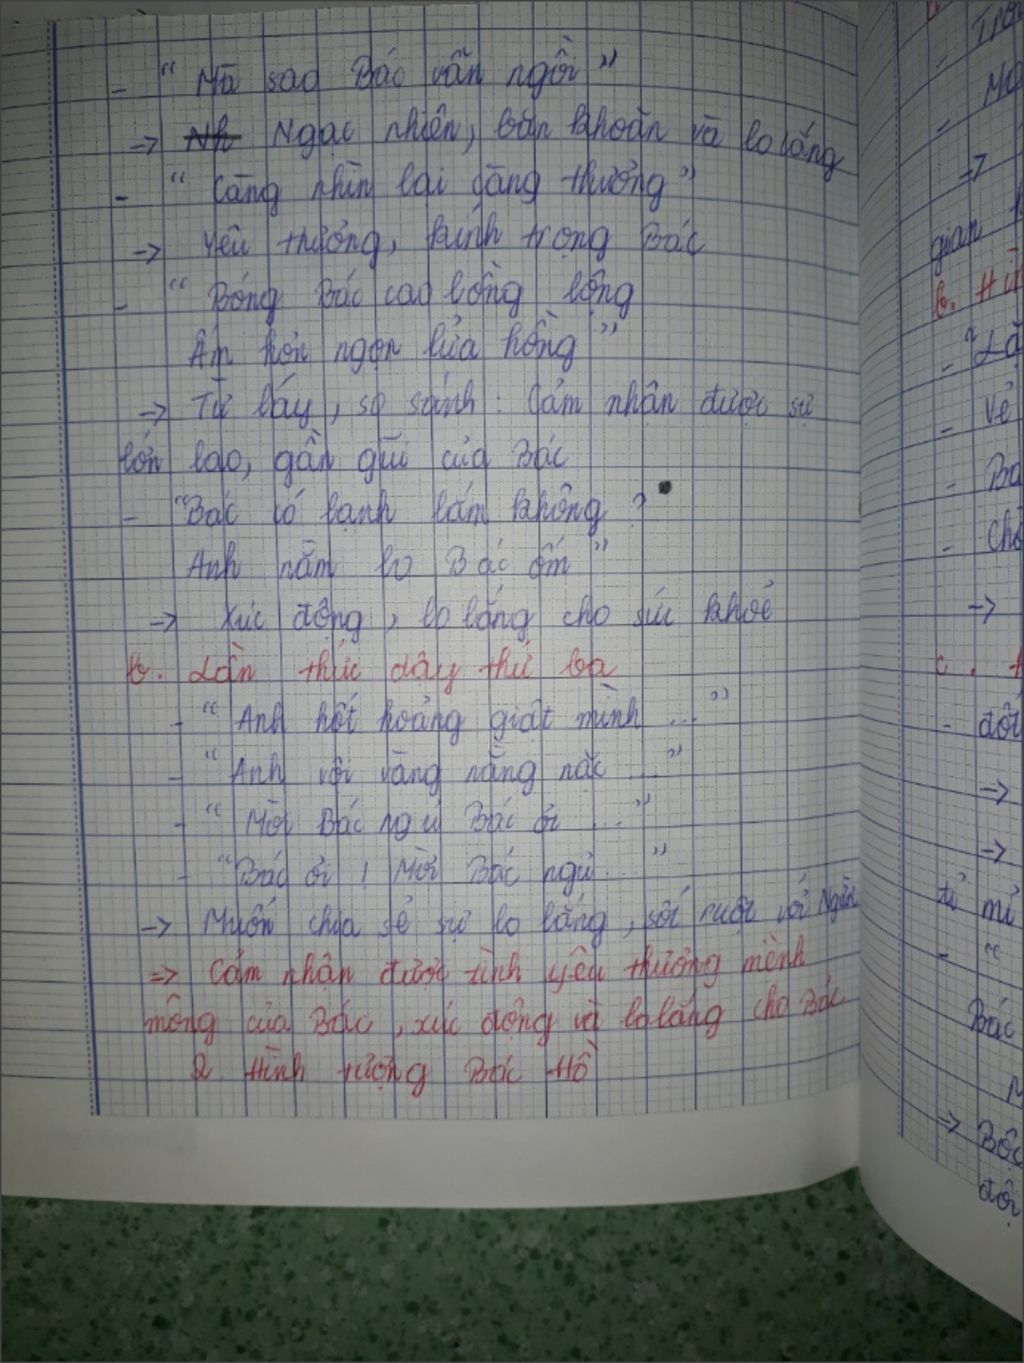 - "Mà sao Bác vẫn ngồi"
-> Ngạc nhiên, băn khoăn và lo lắng
- "Càng nhìn lại càng thương"
-> Yêu thương, kính trọng Bác
- "Bóng Bác cao lồng lộng
Ấm hơn ngọn lửa hồng"
-> Từ láy, so sánh: Cảm nhận được sự
lớn lao, gần gũi của Bác
- "Bác có lạnh lắm không?
Anh nằm lo Bác ốm"
-> Xúc động, lo lắng cho sức khoẻ
b. Lần thức dậy thứ ba
- "Anh hốt hoảng giật mình ..."
- "Anh vội vàng nằng nặc ..."
- "Mời Bác ngủ Bác ơi ..."
- "Bác ơi! Mời Bác ngủ..."
-> Muốn chia sẻ sự lo lắng, sốt ruột với Người
=> Cảm nhận được tình yêu thương mênh
mông của Bác, xúc động và lo lắng cho Bác
2. Hình tượng Bác Hồ
-
-
-
->
gian
b.
-
- Vẻ
-
-
->
c.
-
->
->
tỉ mỉ
- "
Bác
->
đội